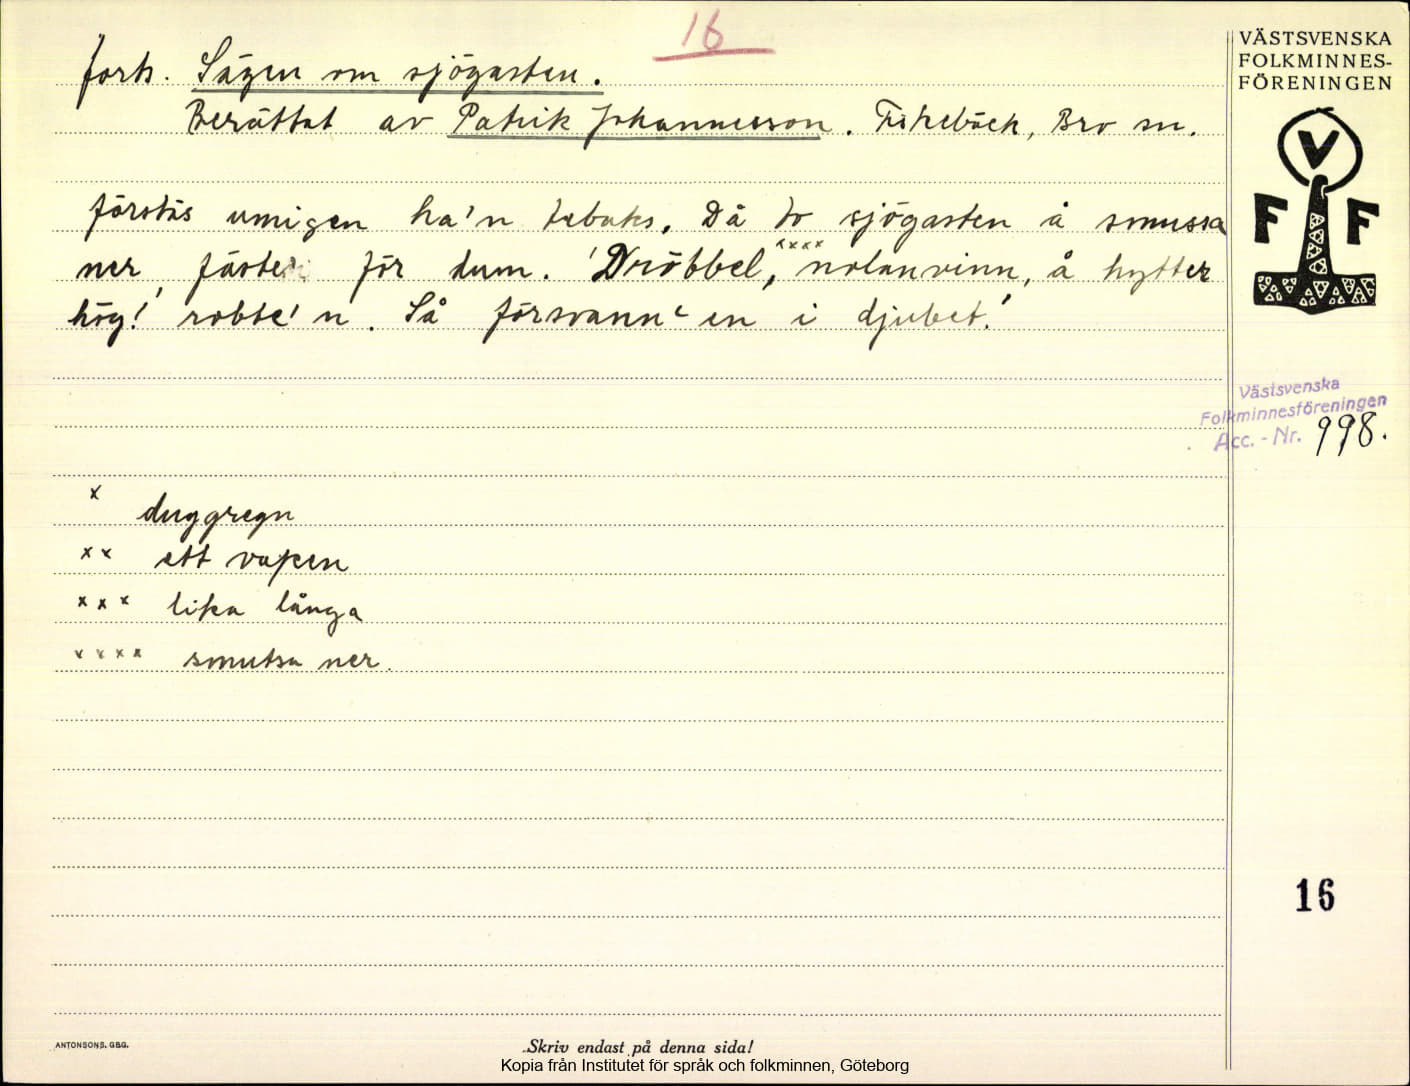 16
forts. Sägen om sjögasten.
Berättat av Patrik Johannesson. Fiskebäck, Bro sn.
förstås umigen ha'n tebaks. Då to sjögasten å smussa
xxxx
ner fäster för dum. 'Dröbbel, nolanvinn, å hytter
hög! robte' n. Så försvann en i djubet!
x duggregn
xx ett vapen
xxx lika långa
xxxx smutsa ner.
VÄSTSVENSKA
FOLKMINNES-
FÖRENINGEN
V
F F
Västsvenska
Folkminnesföreningen
Acc. - Nr. 998.
16
ANTONSONS. GBG.
Skriv endast på denna sida!
Kopia från Institutet för språk och folkminnen, Göteborg